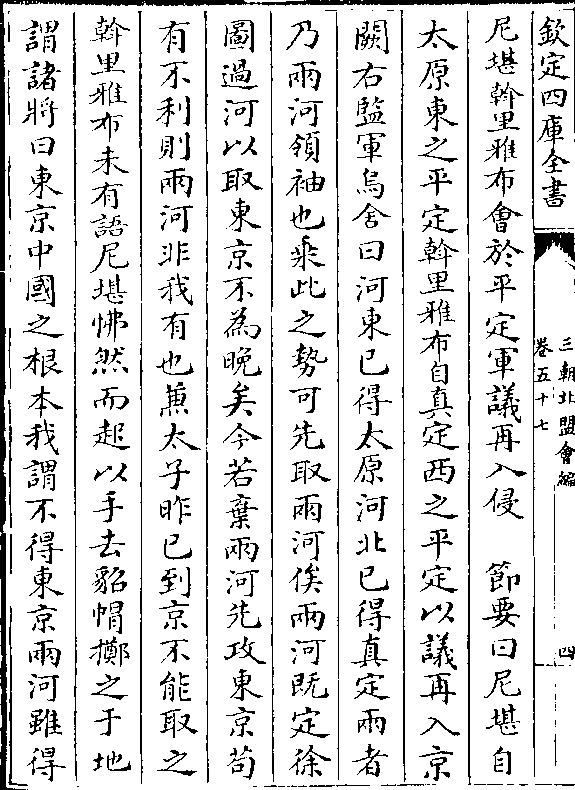 欽定四庫全書
三朝北盟會編
卷五十七
四
尼堪幹里雅布會於平定軍議再入侵　節要曰尼堪自
太原東之平定幹里雅布自真定西之平定以議再入京
闕右監軍烏舍曰河東已得太原河北已得真定兩者
乃兩河領袖也乘此之勢可先取兩河俟兩河既定徐
圖過河以取東京不為晚矣今若棄兩河先攻東京茍
有不利則兩河非我有也兼太子昨已到京不能取之
幹里雅布未有語尼堪怫然而起以手去貂帽擲之于地
謂諸將曰東京中國之根本我謂不得東京兩河雖得